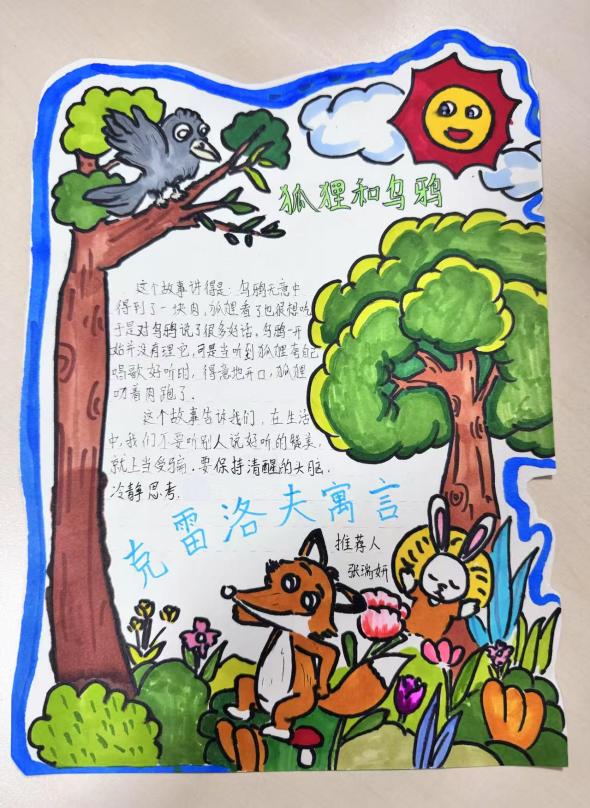 狐狸和乌鸦
这个故事讲得是：乌鸦无意中
得到了一块肉，狐狸看了也很想吃
于是对乌鸦说了很多好话，乌鸦一开
始并没有理它，可是当听到狐狸夸自己
唱歌好听时，得意地开口，狐狸
叼着肉跑了．
这个故事告诉我们，在生活
中，我们不要听别人说好听的赞美，
就上当受骗．要保持清醒的大脑．
冷静思考．
克雷洛夫寓言
推荐人
张满妍